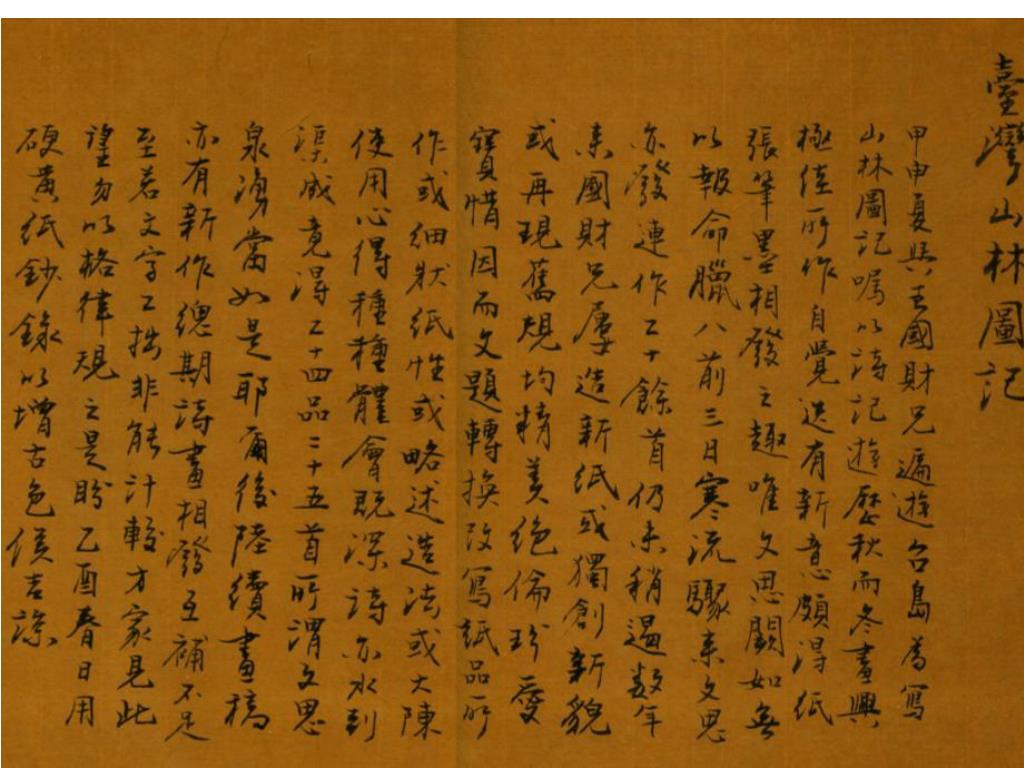 臺灣山林圖記
甲申夏與王國財兄遍遊台島為寫
山林圖記囑以詩記遊歷秋而冬畫興
極佳所作自覺迭有新意頗得紙
張筆墨相發之趣唯文思闕如無
以報命臘八前三日寒流驟來文思
亦發連作二十餘首仍未稍遏數年
來國財兄屢造新紙或獨創新貌
或再現舊規均精美絕倫珍愛
寶惜因而文題轉換改寫紙品所
作或細狀紙性或略述造法或大陳
使用心得種種體會既深詩亦水到
渠成竟得二十四品二十五首所謂文思
泉湧當如是耶爾後陸續畫稿
亦有新作總期詩畫相發互補不足
至若文字工拙非能計較方家見此
望勿以格律規之是盼乙酉春日用
硬黃紙鈔錄以增古色侯吉諒